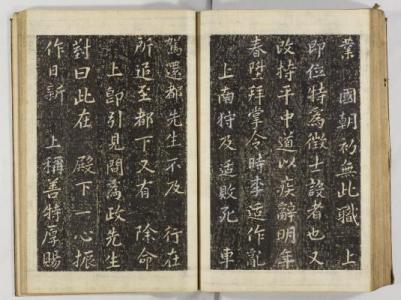 業　國朝初無此職　上
即位特為徵士設者也又
改持平中道以疾辭明年
春陞拜掌令時李适作亂
上南狩及适敗死　車
駕還都先生不及　行在
所追至都下又有　除命
上即引見問為政先生
對曰此在　殿下一心振
作日新　上稱善特厚賜